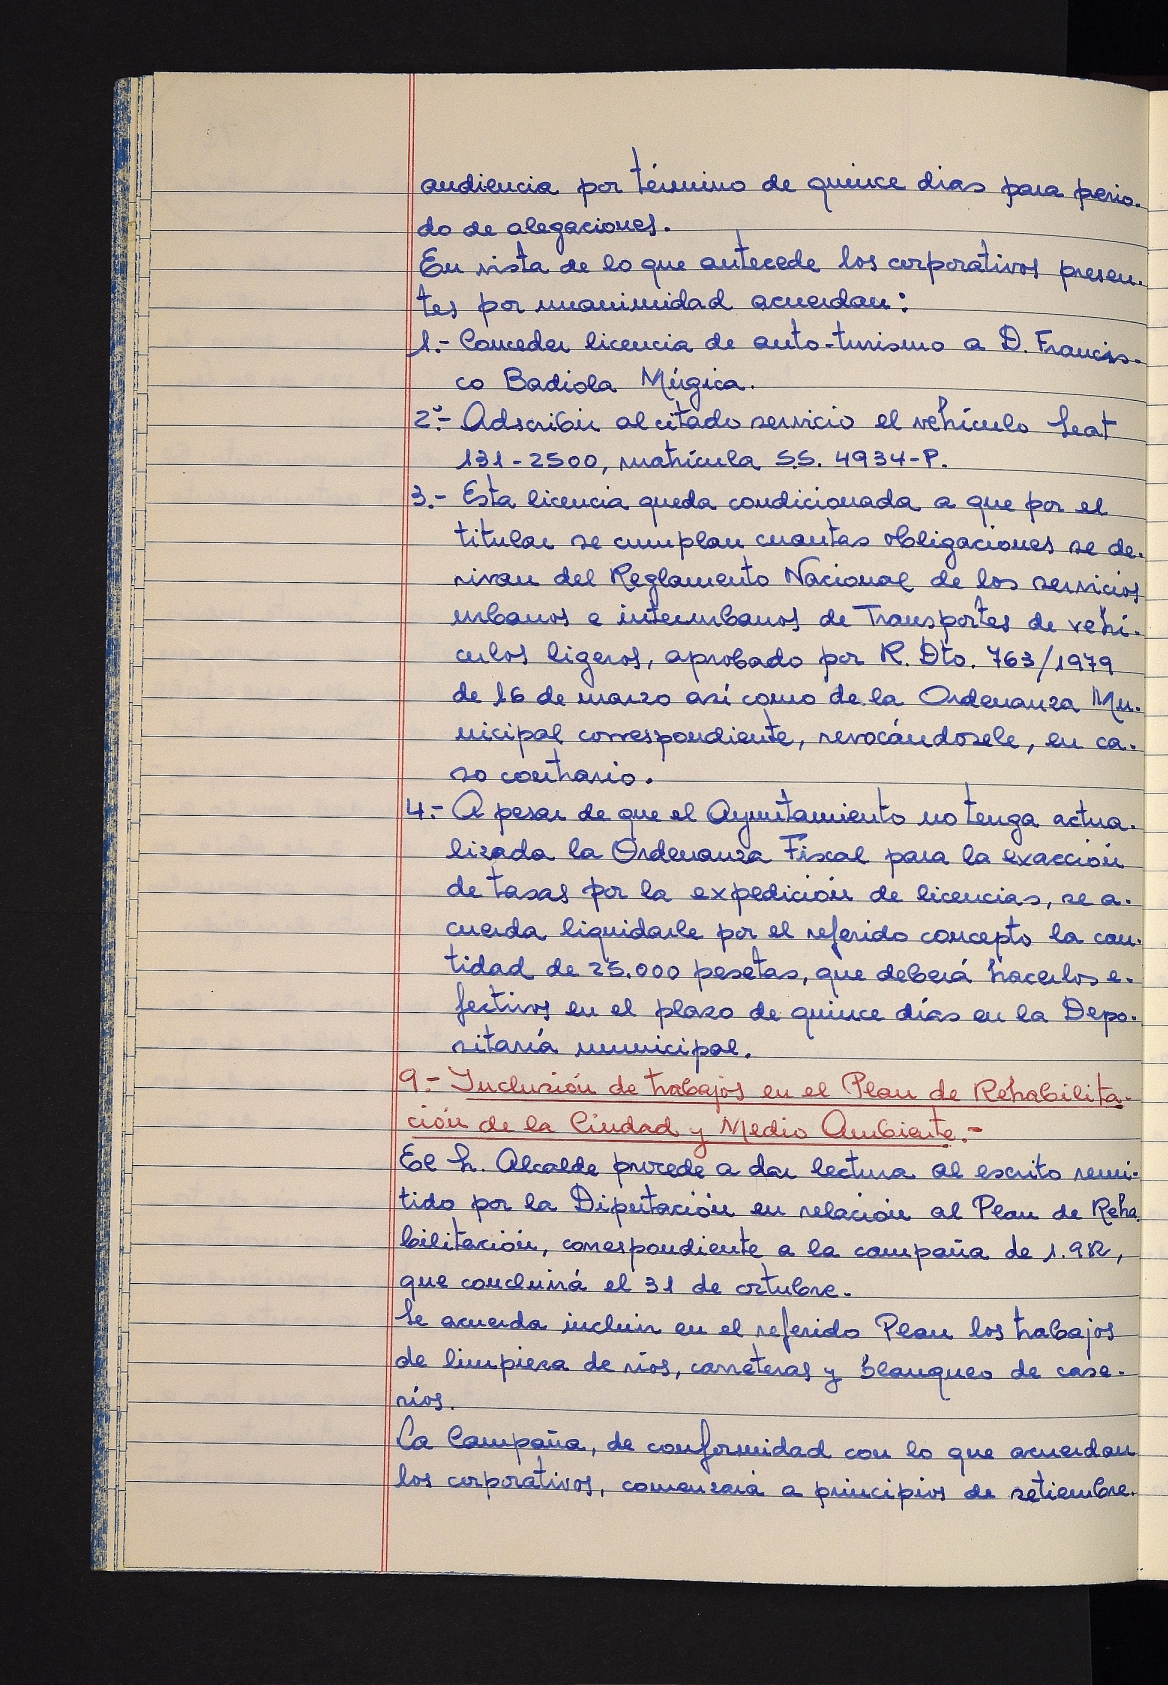 audiencia por término de quince dias para perio-
do de alegaciones.
En vista de lo que antecede los corporativos presen-
tes por unanimidad acuerdan:
1.- Conceder licencia de auto-turismo a D. Francis-
co Badiola Múgica.
2º.- Adscribir al citado servicio el vehículo Seat
131-2500, matrícula S.S. 4934-P.
3.- Esta licencia queda condicionada a que por el
titular se cumplan cuantas obligaciones se de-
rivan del Reglamento Nacional de los servicios
urbanos e interurbanos de Transportes de vehí-
culos ligeros, aprobado por R. Dto. 763/1979
de 16 de marzo así como de la Ordenanza Mu-
nicipal correspondiente, revocándosele, en ca-
so contrario.
4.- A pesar de que el Ayuntamiento no tenga actua-
lizada la Ordenanza Fiscal para la exacción
de tasas por la expedición de licencias, se a-
cuerda liquidarle por el referido concepto la can-
tidad de 25.000 pesetas, que deberá hacerlos e-
fectivos en el plazo de quince días en la Depo-
sitaría municipal.
9.- Inclusión de trabajos en el Plan de Rehabilita-
ción de la Ciudad y Medio Ambiente.-
El Sr. Alcalde procede a dar lectura al escrito remi-
tido por la Diputación en relación al Plan de Reha-
bilitación, correspondiente a la campaña de 1.982,
que concluirá el 31 de octubre.
Se acuerda incluir en el referido Plan los trabajos
de limpieza de ríos, carreteras y blanqueo de case-
ríos.
La Campaña, de conformidad con lo que acuerdan
los corporativos, comenzará a principios de setiembre.